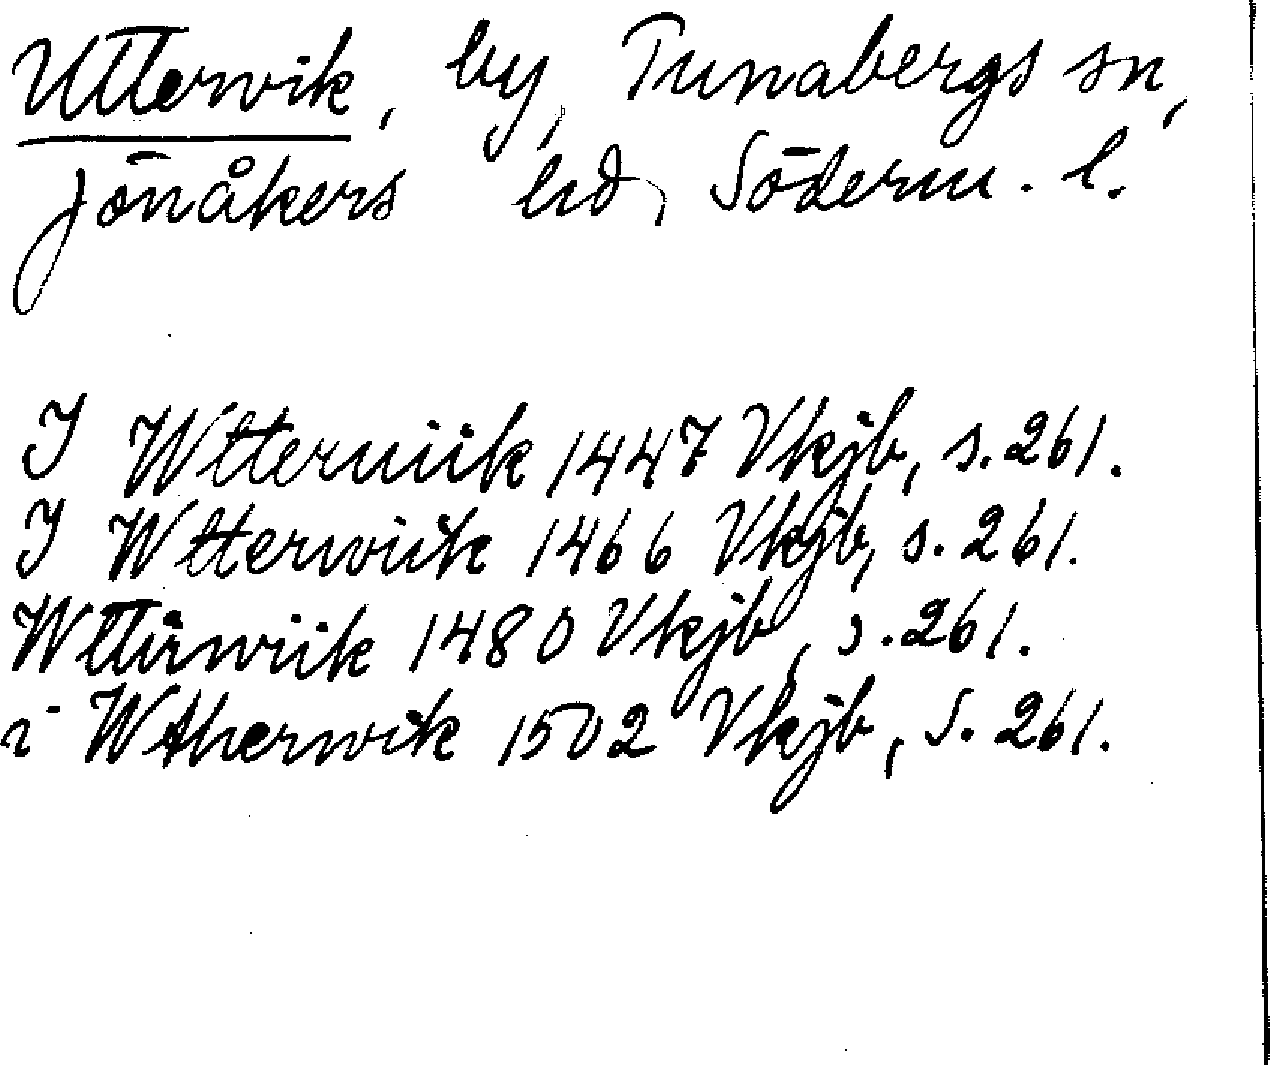 Uttervik, by, Tunabergs sn,
Jönåkers hd, Söderm. l.
I Wtteruiik 1447 Vkjb, s. 261.
I Wtterwiik 1466 Vkjb, s. 261.
Wttirwiik 1480 Vkjb, s. 261.
i Wtherwik 1502 Vkjb, S. 261.